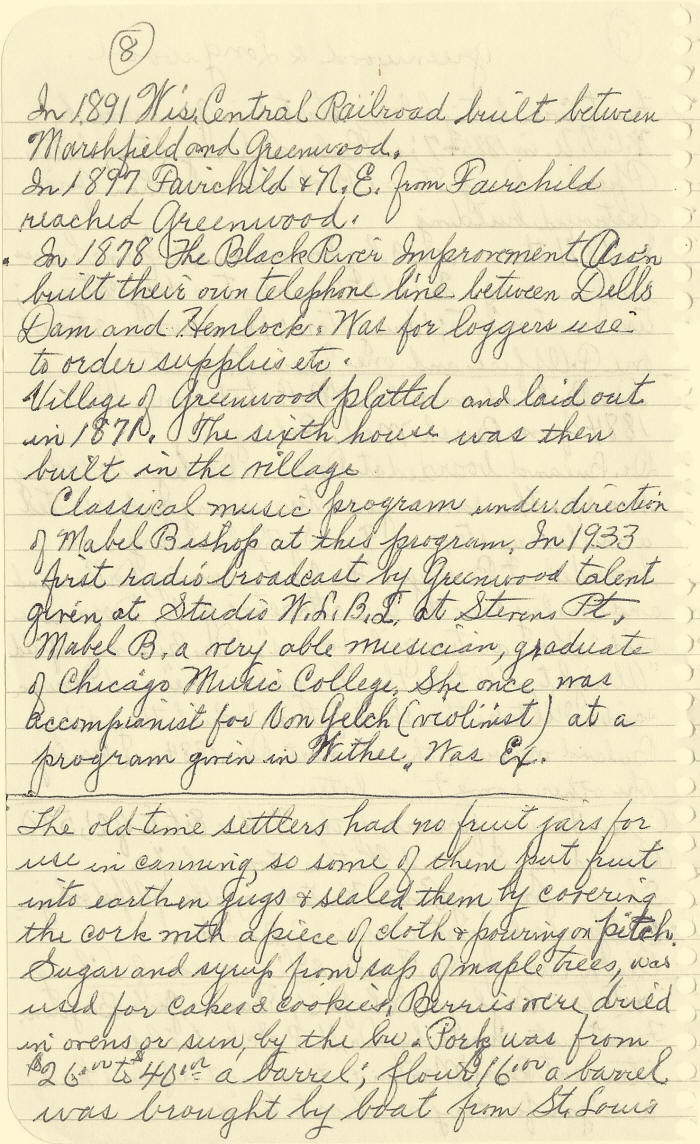 8
In 1891 Wis. Central Railroad built between
Marshfield and Greenwood.
In 1897 Fairchild & N. E. from Fairchild
reached Greenwood.
In 1878 The Black River Improvement Ass'n
built their own telephone line between Dells
Dam and Hemlock. Was for loggers use
to order supplies etc.
Village of Greenwood platted and laid out
in 1871. The sixth house was then
built in the village
Classical music program under direction
of Mabel Bishop at this program. In 1933
first radio broadcast by Greenwood talent
given at Studio W.L.B.L. at Stevens Pt.
Mabel B. a very able musician, graduate
of Chicago Music College. She once was
accompianist for Von Gelch (violinist) at a
program given in Withee. Was Ex.
The old-time settlers had no fruit jars for
use in canning, so some of them put fruit
into earthen jugs & sealed them by covering
the cork with a piece of cloth & pouring on pitch.
Sugar and syrup from sap of maple trees, was
used for cakes & cookies. Berries were dried
in ovens or sun, by the bu. Pork was from
$26.00 to $40.00 a barrel; flour $16.00 a barrel
was brought by boat from St. Louis